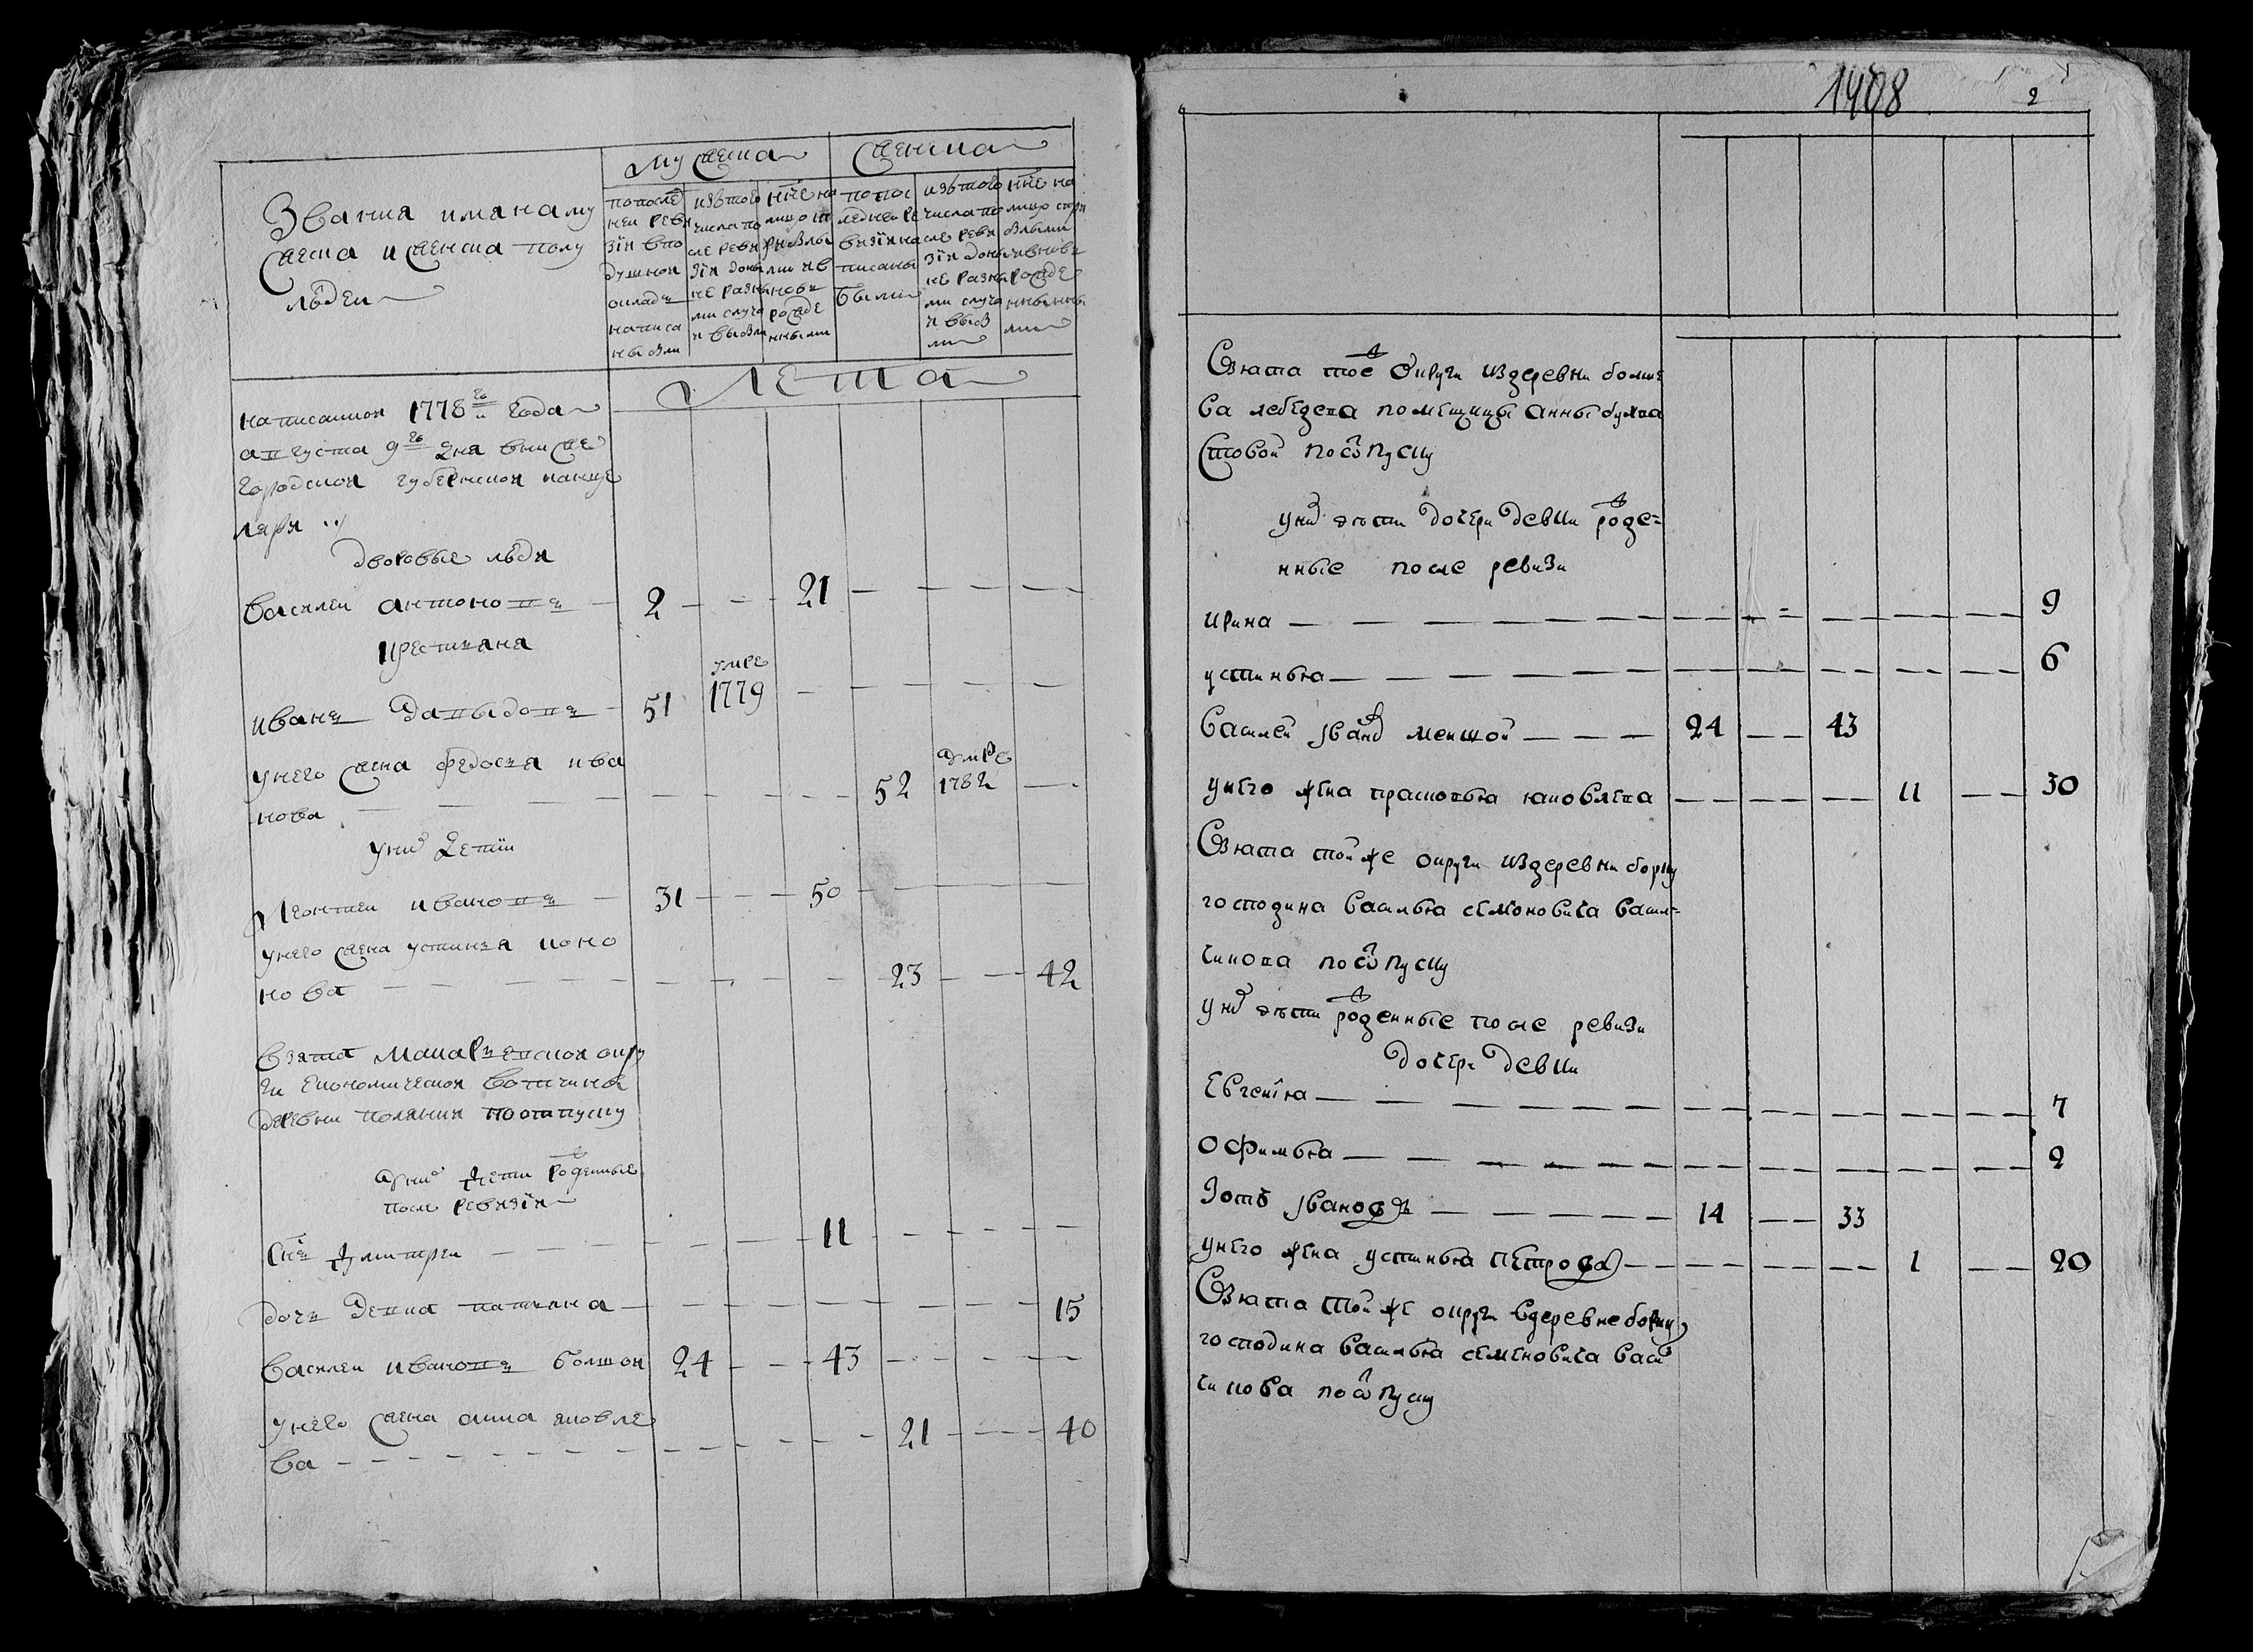 Звания имянаму
жеска и женска полу
людеи
мужеска
женска
попослѣд
неи реви
зіи впо
душнои
окладъ
написа
ны были
изътого
числа по
сле реви
зіи доны
не разны
ми случа
и выбыли
ннѣ на
лицо ст
рибылы
ми ив
новь
рожде
нными
попос
леднеи ре
визіи на
писаны
были
изътого
числа по
сле реви
зіи доны
не разны
ми случа
и выбы
ли
ннѣ на
лицо спри
былыми
ивновь
рожде
нными
лета
написанои 1778го году
августа 9го дня вниже
городскои губернскои канце
ляри
дворовые люди
василеи антоновъ 2 21
крестьяня
иванъ давыдовъ 51 умре 1779
унего жена федосья ива
нова 52 умре 1782
уних дети
леонтеи ивановъ 31 50
унего жена устинья коно
нова 23 42
взята макарьевскои окру
ги економическои вотчины
деревни полянки поотпуску
уних дети рожденные
после ревизіи
снъ дмитреи 11
дочь девка татьяна 15
василеи ивановъ болшои 24 43
унего жена анна яковле
ва 21 40
1408
2
взята тоеж округи издеревни болше
ва лебедева помещицы анны булга
ковой поотпуску
уних дѣти дочери девки рожде=
нные после ревизи
ирина 9
устинья 6
василей иванов меншой 24 43
унего жена прасковья яковлева 11 30
взята тойже округи издеревни борку
господина василья семоновича васи=
чикова поотпуску
уних дѣти рожденные после ревизи
дочери девки
евгенія 7
офимья 2
Зотъ ивановъ 14 33
унего жена устинья петрова 1 20
взята тойже округи вдеревне борку
господина василья семеновича васи
чикова поотпуску